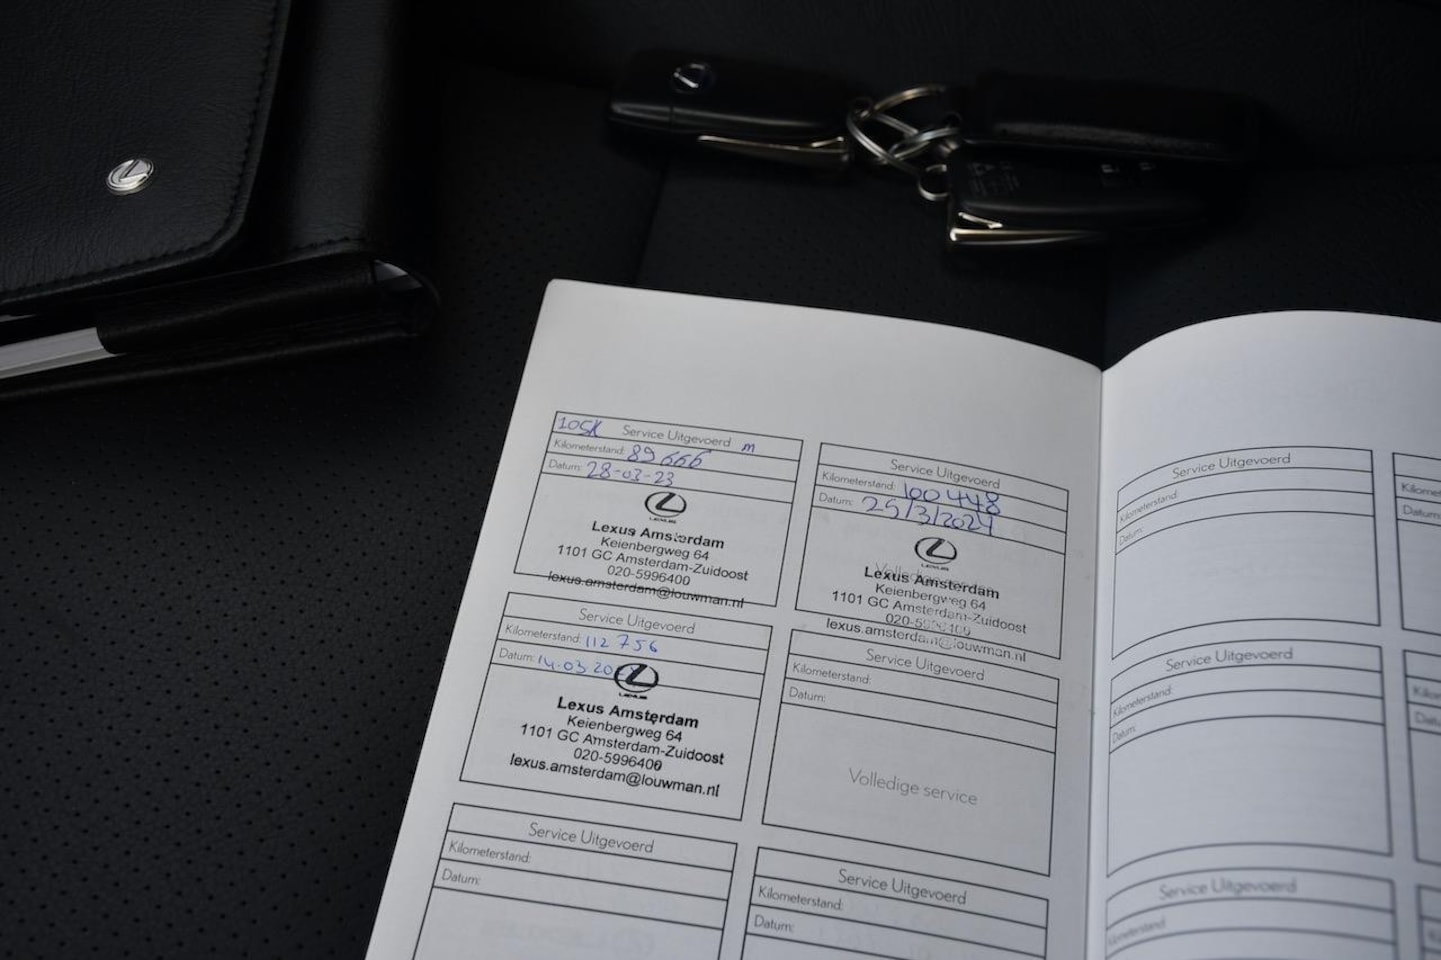 105K Service Uitgevoerd m
Kilometerstand: 89 666
Datum: 28-03-23
LEXUS
Lexus Amsterdam
Keienbergweg 64
1101 GC Amsterdam-Zuidoost
020-5996400
lexus.amsterdam@louwman.nl
Service Uitgevoerd
Kilometerstand: 100 448
Datum: 25/3/2024
LEXUS
Volledige
Lexus Amsterdam
Keienbergweg 64
1101 GC Amsterdam-Zuidoost
020-5996400
lexus.amsterdam@louwman.nl
Service Uitgevoerd
Kilometerstand: 112 756
Datum: 14-03
LEXUS
Lexus Amsterdam
Keienbergweg 64
1101 GC Amsterdam-Zuidoost
020-5996400
lexus.amsterdam@louwman.nl
Service Uitgevoerd
Kilometerstand:
Datum:
Volledige service
Service Uitgevoerd
Kilometerstand:
Datum:
Service Uitgevoerd
Kilometerstand:
Datum:
Service Uitgevoerd
Kilometerstand:
Datum:
Service Uitgevoerd
Kilometerstand:
Datum:
Service Uitgevoerd
Kilometerstand: